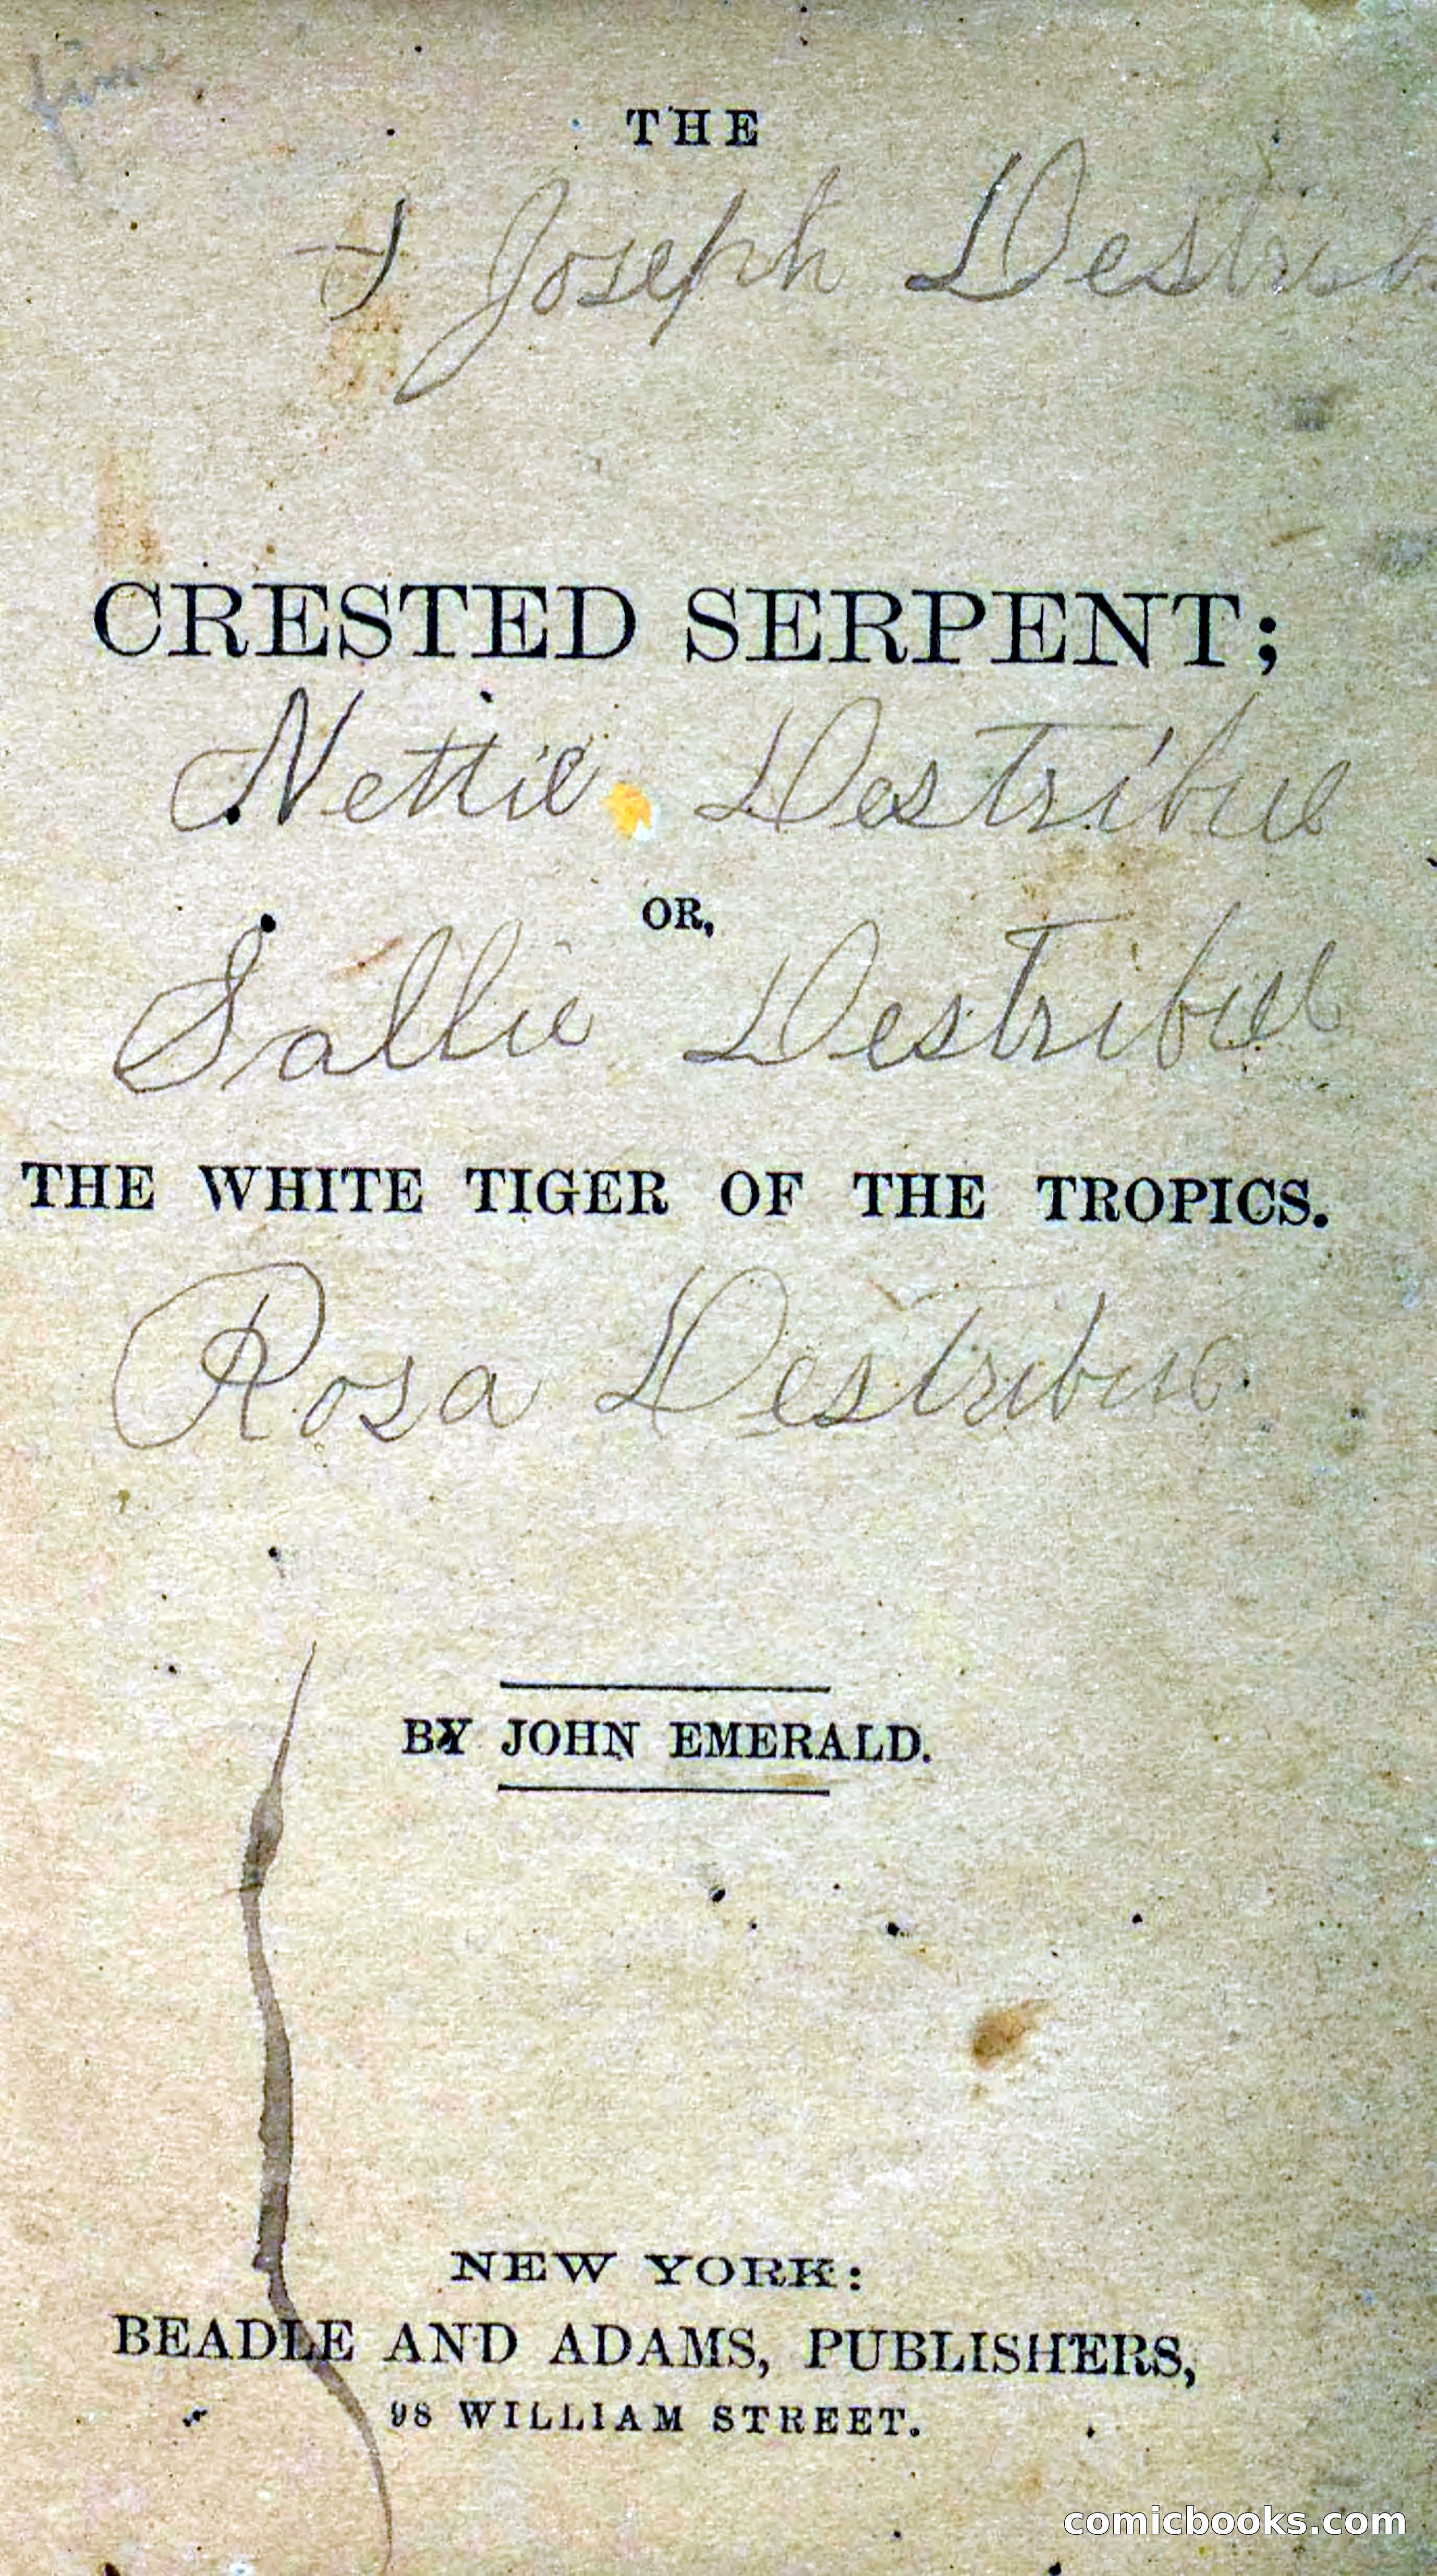 THE
Joseph Destrib
CRESTED SERPENT;
Nettie Destribue
OR,
Sallie Destribue
THE WHITE TIGER OF THE TROPICS.
Rosa Destribue
BY JOHN EMERALD.
NEW YORK:
BEADLE AND ADAMS, PUBLISHERS,
98 WILLIAM STREET.
comicbooks.com